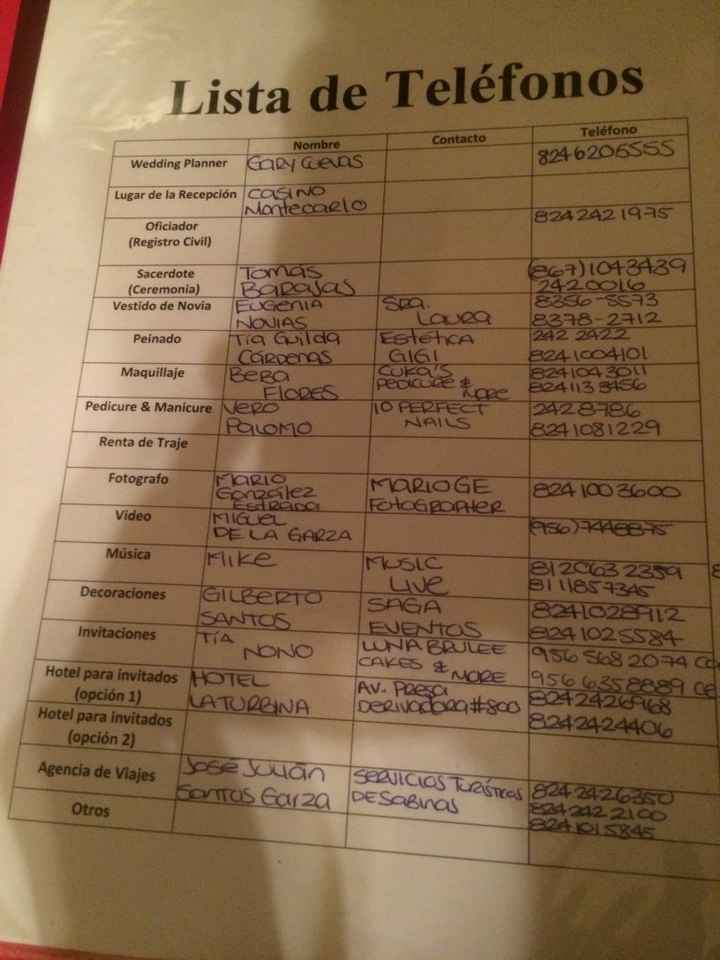 Lista de Teléfonos
Nombre Contacto Teléfono
Wedding Planner Gary Cuevas 8246205555
Lugar de la Recepción CASINO
MonteCarlo 8242421975
Oficiador
(Registro Civil)
Sacerdote Tomás (867)1043439
(Ceremonia) BARAJAS 2420016
Vestido de Novia EUGENIA SRA. 8356-8573
NOVIAS LAURA 8378-2712
Peinado Tía Guilda Estética 242 2422
CÁRDENAS GIGI 8241004101
Maquillaje BEBA CUKA'S 8241043011
FLORES PEDICURE & MORE 8241138456
Pedicure & Manicure VERO 10 PERFECT 2428786
PALOMO NAILS 8241081229
Renta de Traje
Fotografo MARIO MARIOGE 8241003600
González FOTOGRAPHER
Estrada
Video MIGUEL (956)7448875
DE LA GARZA
Música MIKE MUSIC 8120632359
LIVE 8111857345
Decoraciones GILBERTO SAGA 8241028912
SANTOS EVENTOS 8241025584
Invitaciones TÍA LUNA BRULEE 956 568 2074
NONO CAKES & MORE 956 6358889
Hotel para invitados HOTEL AV. PRESA 8242426968
(opción 1) LA TURBINA DERIVADORA #800 8242424406
Hotel para invitados
(opción 2)
Agencia de Viajes José Julián SERVICIOS TURÍSTICOS 8242426350
Santos Garza DE SABINAS 824242 2100
8241015845
Otros